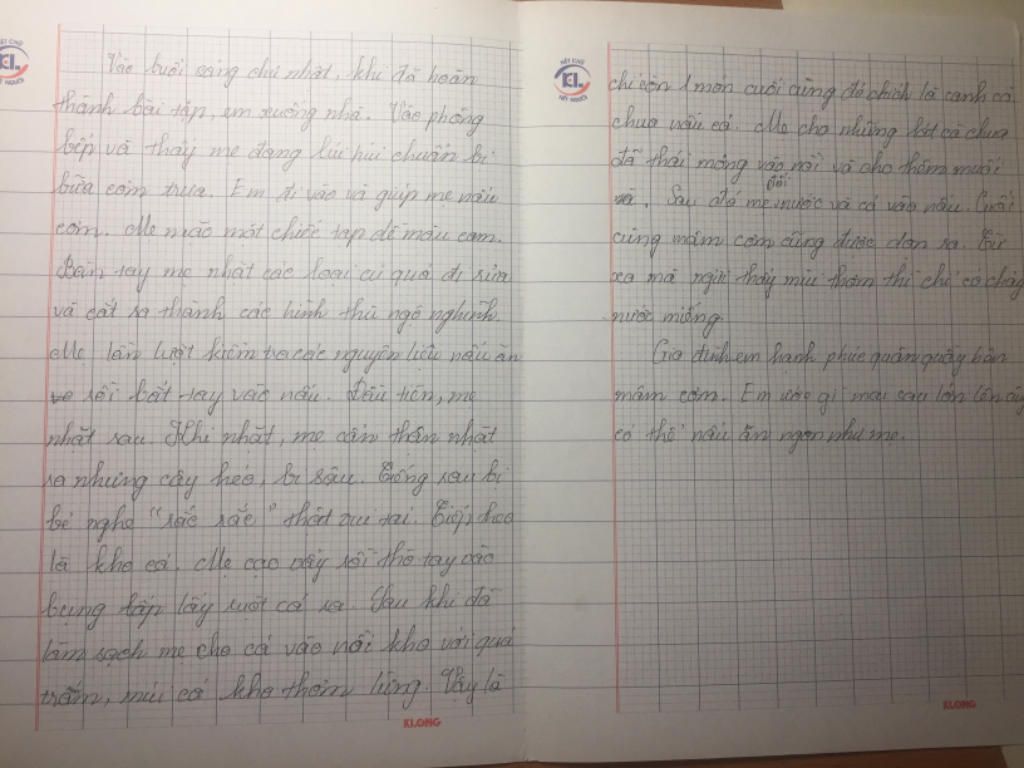 Vào buổi sáng chủ nhật, khi đã hoàn
thành bài tập, em xuống nhà. Vào phòng
bếp và thấy mẹ đang lúi húi chuẩn bị
bữa cơm trưa. Em đi vào và giúp mẹ nấu
cơm. Mẹ mặc một chiếc tạp dề màu cam.
Bàn tay mẹ nhặt các loại củ quả đi rửa
và cắt ra thành các hình thù ngộ nghĩnh.
Mẹ lần lượt kiểm tra các nguyên liệu nấu ăn
rồi bắt tay vào nấu. Đầu tiên, mẹ
nhặt rau. Khi nhặt, mẹ cẩn thận nhặt
ra những cây héo, bị sâu. Tiếng rau bị
bẻ nghe "rắc rắc" thật vui tai. Tiếp theo
là kho cá. Mẹ cạo vảy rồi thò tay vào
bụng lấy ruột cá ra. Sau khi đã
làm sạch mẹ cho cá vào nồi kho với quả
trám, mùi cá kho thơm lừng. Vậy là
chỉ còn 1 món cuối cùng đó chính là canh cà
chua nấu cá. Mẹ cho những lát cà chua
đã thái mỏng vào nồi và cho thêm muối
. Sau đó mẹ đổi nước và cá vào nấu. Cuối
cùng mâm cơm cũng được dọn ra. Từ
xa mà ngửi thấy mùi thơm thì chỉ có chảy
nước miếng.
Gia đình em hạnh phúc quân quầy bên
mâm cơm. Em ước gì mai sau lớn lên
có thể nấu ăn ngon như mẹ.
KLONG
KLONG
NÉT CHỮ
KL
NẾT NGƯỜI